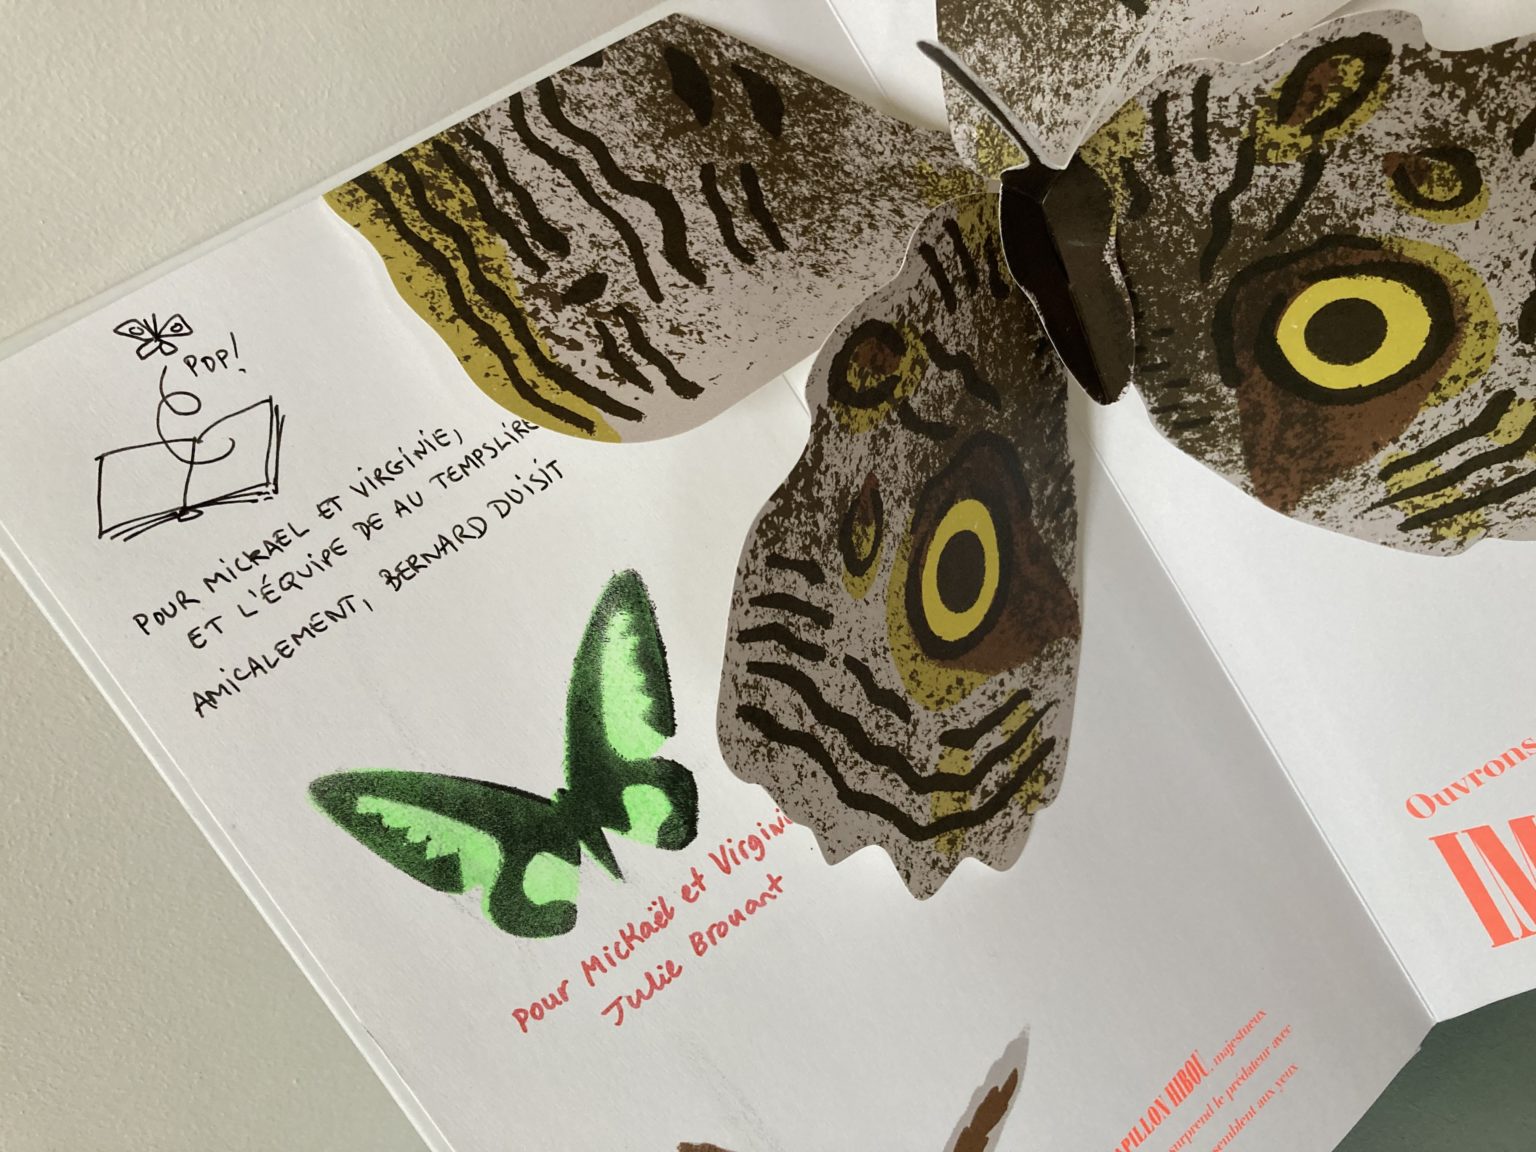 POP!
POUR MICKAEL ET VIRGINIE,
ET L'ÉQUIPE DE AU TEMPSLIRE
AMICALEMENT, BERNARD DUISIT
pour Mickaël et Virgini
Julie Brouant
Ouvrons
PAPILLON HIBOU, majestueux
surprend le prédateur avec
semblent aux yeux